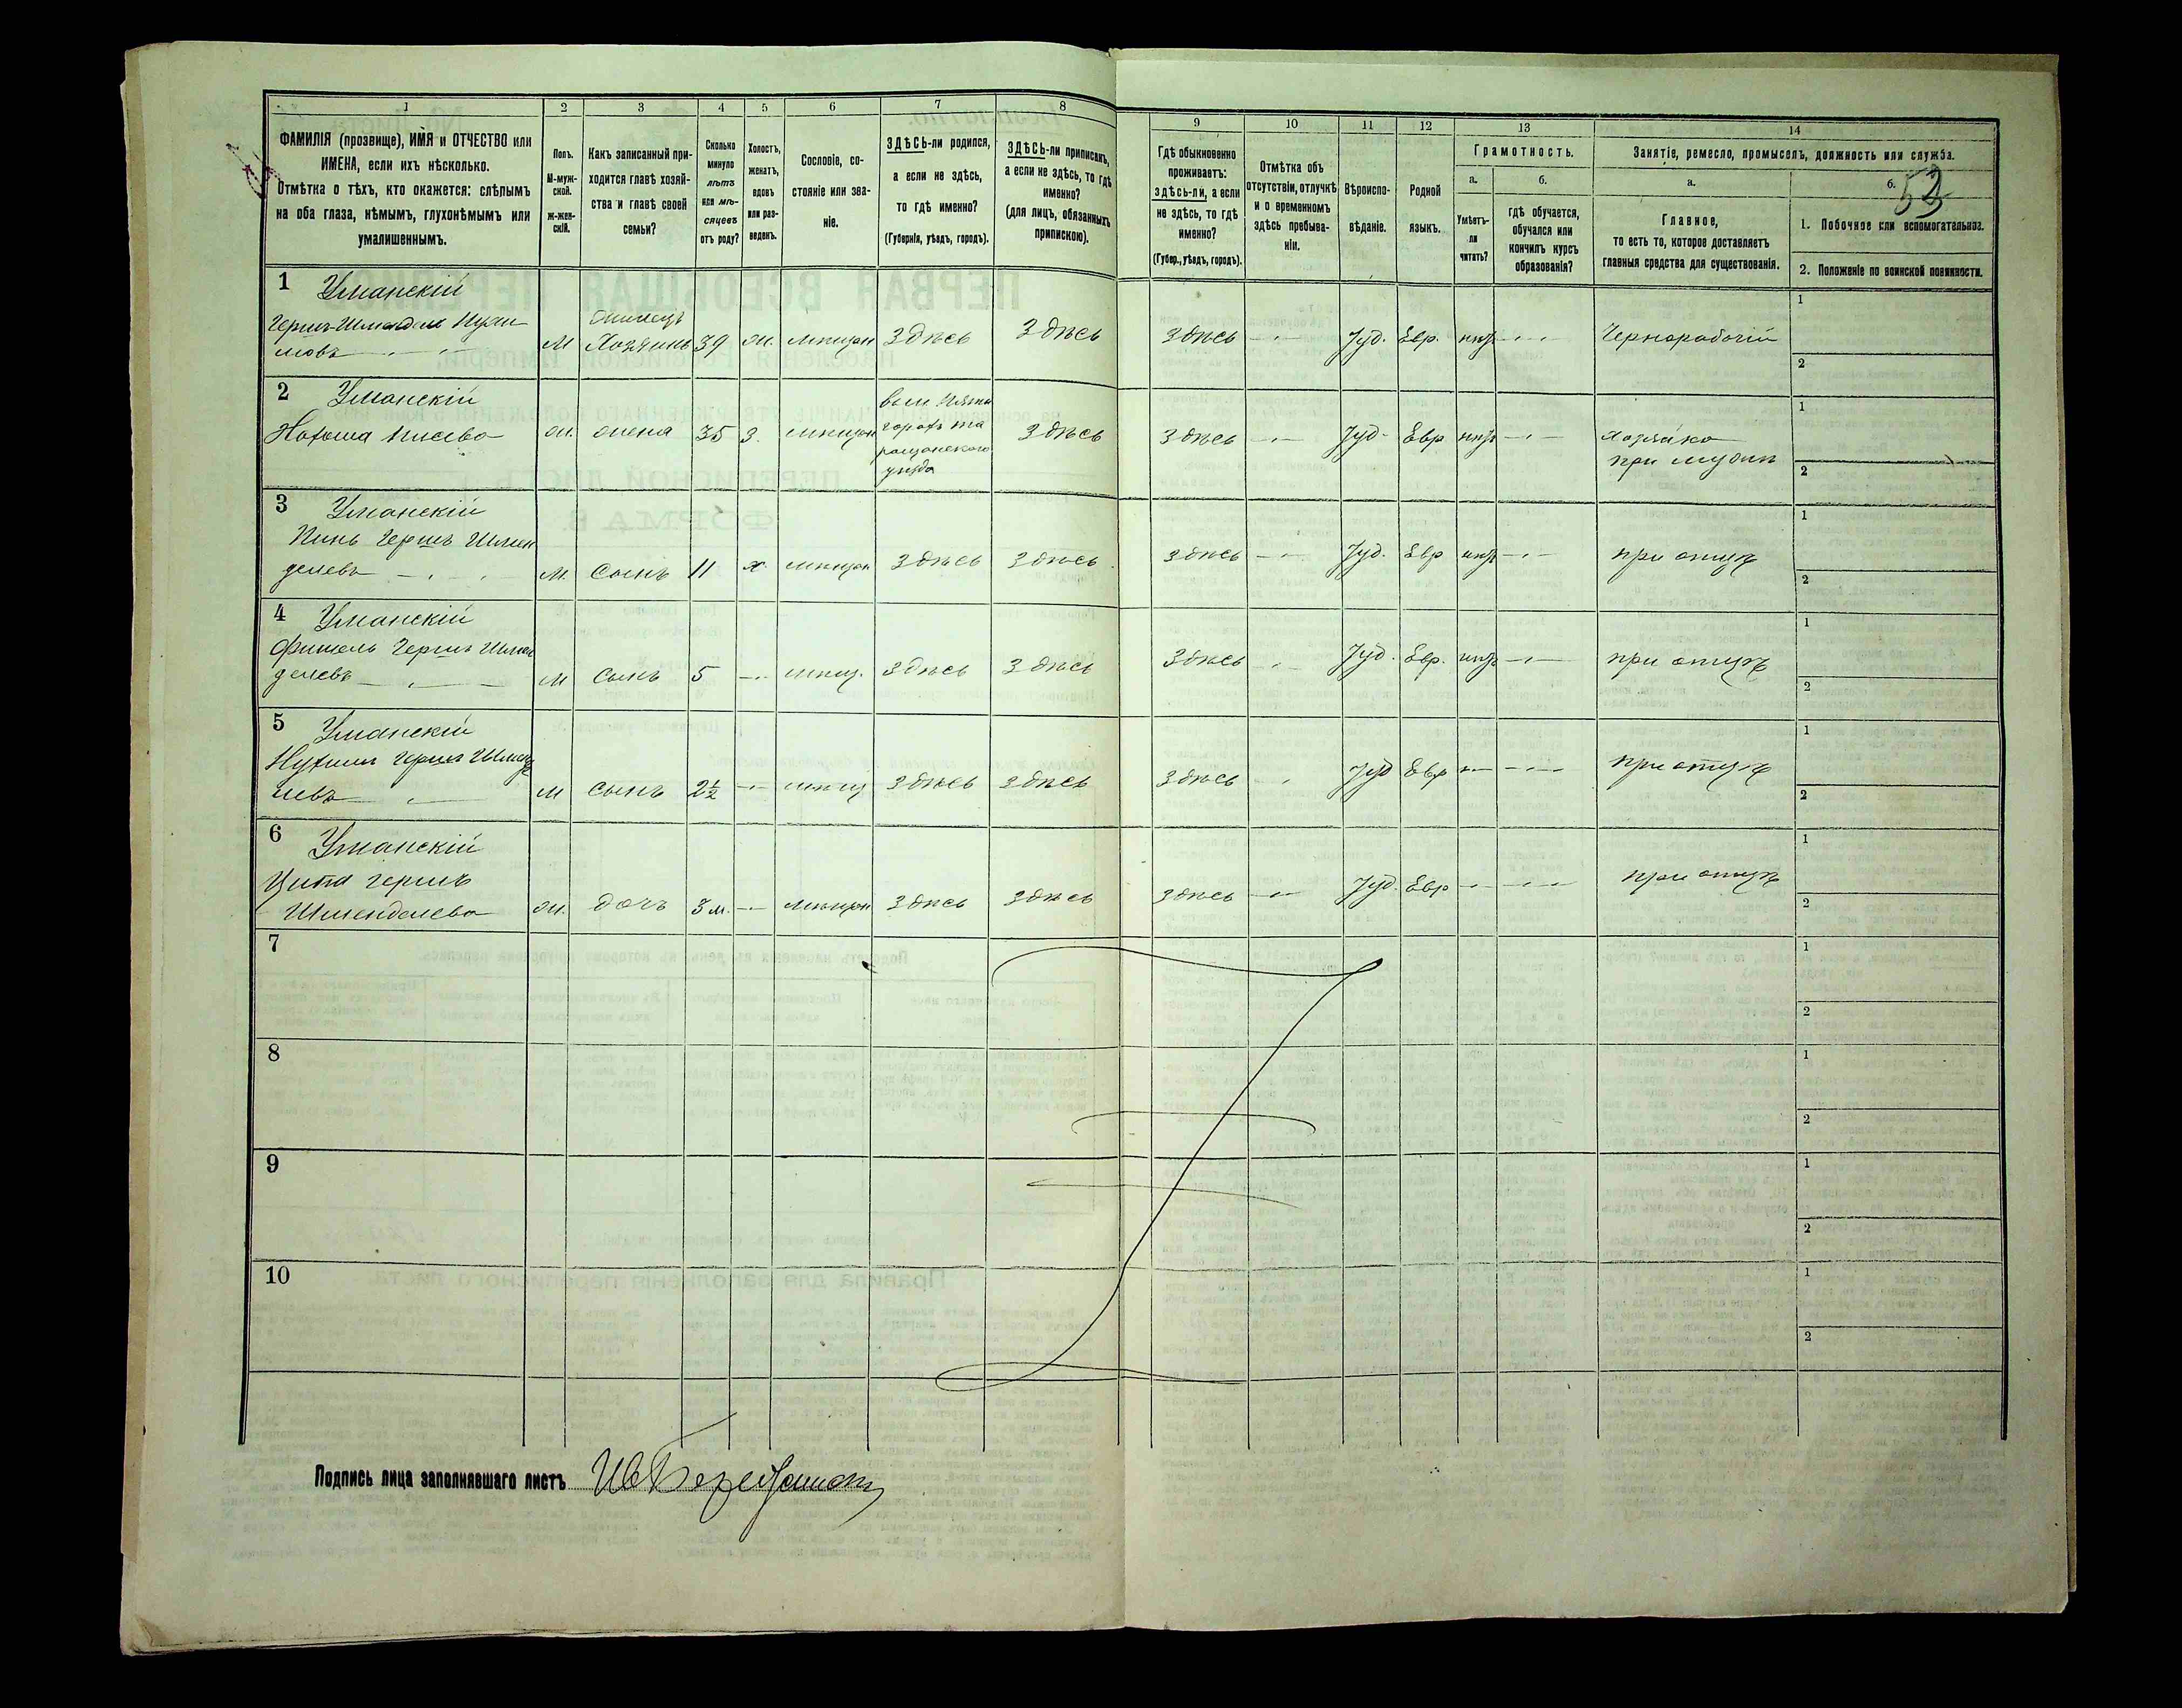 1 2 3 4 5 6 7 8 9 10 11 12 13 14
ФАМИЛІЯ (прозвище), ИМЯ и ОТЧЕСТВО или
ИМЕНА, если ихъ нѣсколько.
Отмѣтка о тѣхъ, кто окажется: слѣпымъ
на оба глаза, нѣмымъ, глухонѣмымъ или
умалишеннымъ.
Полъ.
М-муж-
ской.
ж-жен-
скій.
Какъ записанный при-
ходится главѣ хозяй-
ства и главѣ своей
семьи?
Сколько
минуло
лѣтъ
или мѣ-
сяцевъ
отъ роду?
Холостъ,
женатъ,
вдовъ
или раз-
веденъ.
Сословіе, со-
стояніе или зва-
ніе.
ЗДѢСЬ-ли родился,
а если не здѣсь,
то гдѣ именно?
(Губернія, уѣздъ, городъ).
ЗДѢСЬ-ли приписанъ,
а если не здѣсь, то гдѣ
именно?
(для лицъ, обязанныхъ
припискою).
Гдѣ обыкновенно
проживаетъ:
здѣсь-ли, а если
не здѣсь, то гдѣ
именно?
(Губер., уѣздъ, городъ).
Отмѣтка объ
отсутствіи, отлучкѣ
и о временномъ
здѣсь пребыва-
ніи.
Вѣроиспо-
вѣданіе.
Родной
языкъ.
Грамотность.
а. б.
Умѣетъ-
ли
читать?
гдѣ обучается,
обучался или
кончилъ курсъ
образованія?
Занятіе, ремесло, промыселъ, должность или служба.
а. б.
53
Главное,
то есть то, которое доставляетъ
главныя средства для существованія.
1. Побочное или вспомогательное.
2. Положеніе по воинской повинности.
1 Уманскій
Хозяинъ
М 39 ж. здѣсь здѣсь здѣсь Іуд. Евр. Чернорабочій
1
2
2 Уманскій
ж. жена 35 з. здѣсь здѣсь Іуд. Евр
уѣзда
при мужѣ
1
2
3 Уманскій
Пинь Гершъ Шмен
делевъ м. сынъ 11 х. здѣсь здѣсь здѣсь Іуд. Евр при отцѣ
1
2
4 Уманскій
Фишель Гершъ Шмен
делевъ м сынъ 5 мѣщ. здѣсь здѣсь здѣсь Іуд. Евр. при отцѣ
1
2
5 Уманскій
м сынъ 2½ мѣщ здѣсь здѣсь здѣсь Іуд Евр при отцѣ
1
2
6 Уманскій
Ципа Гершъ
Шменделева ж. дочь 3 м. здѣсь здѣсь здѣсь Іуд. Евр при отцѣ
1
2
7
1
2
8
1
2
9
1
2
10
1
2
Подпись лица заполнявшаго листъ